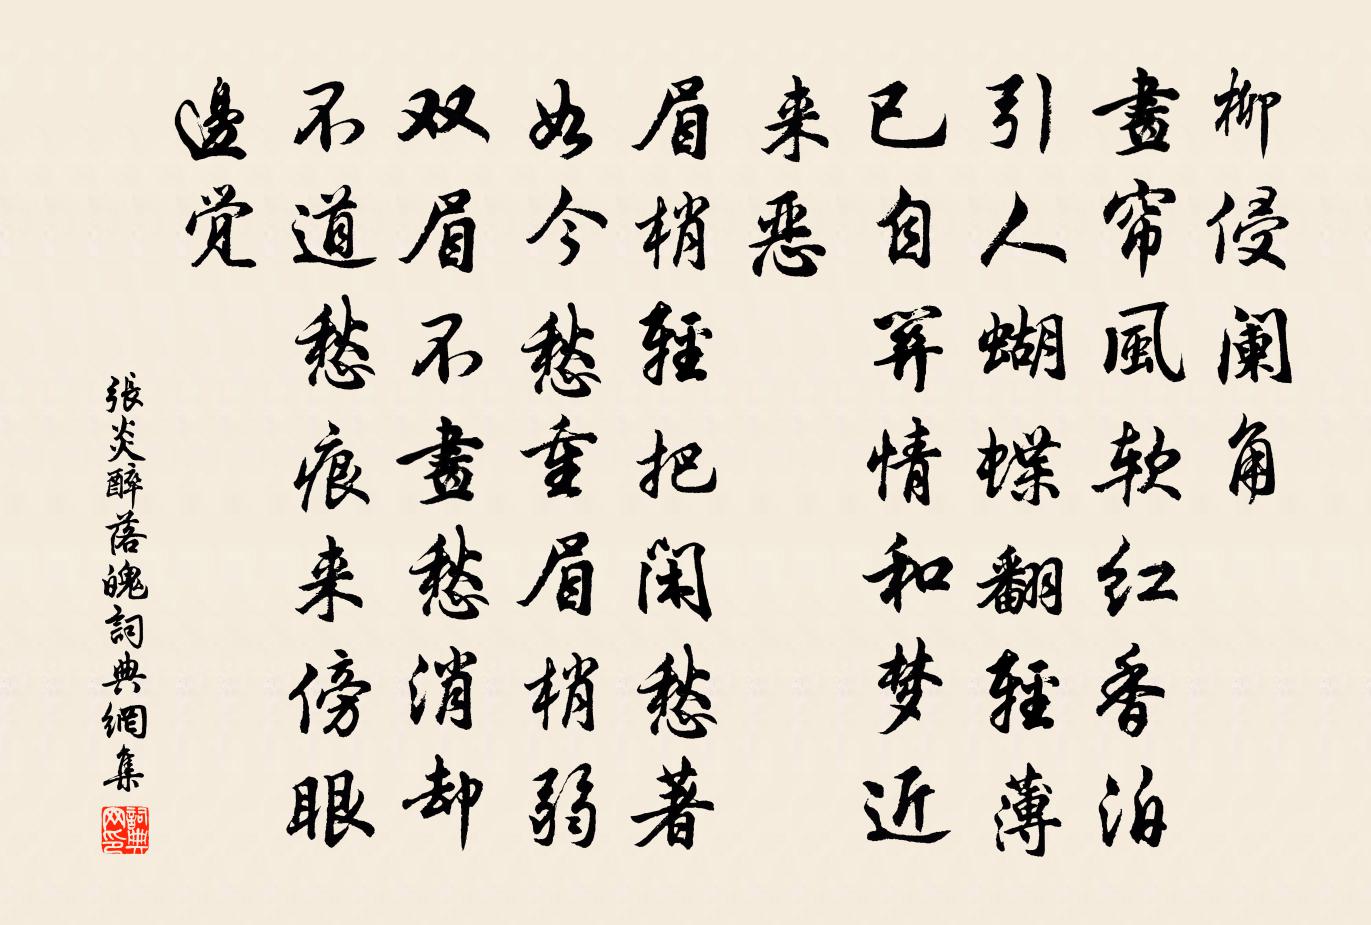 柳侵阑角
畫帘風软红香泊
引人蝴蝶翻輕薄
已自关情和梦近
来恶
眉梢輕把闲愁著
如今愁重眉梢弱
双眉不畫愁消却
不道愁痕来傍眼
邊觉
張炎醉落魄詞典網集
詞典
网印